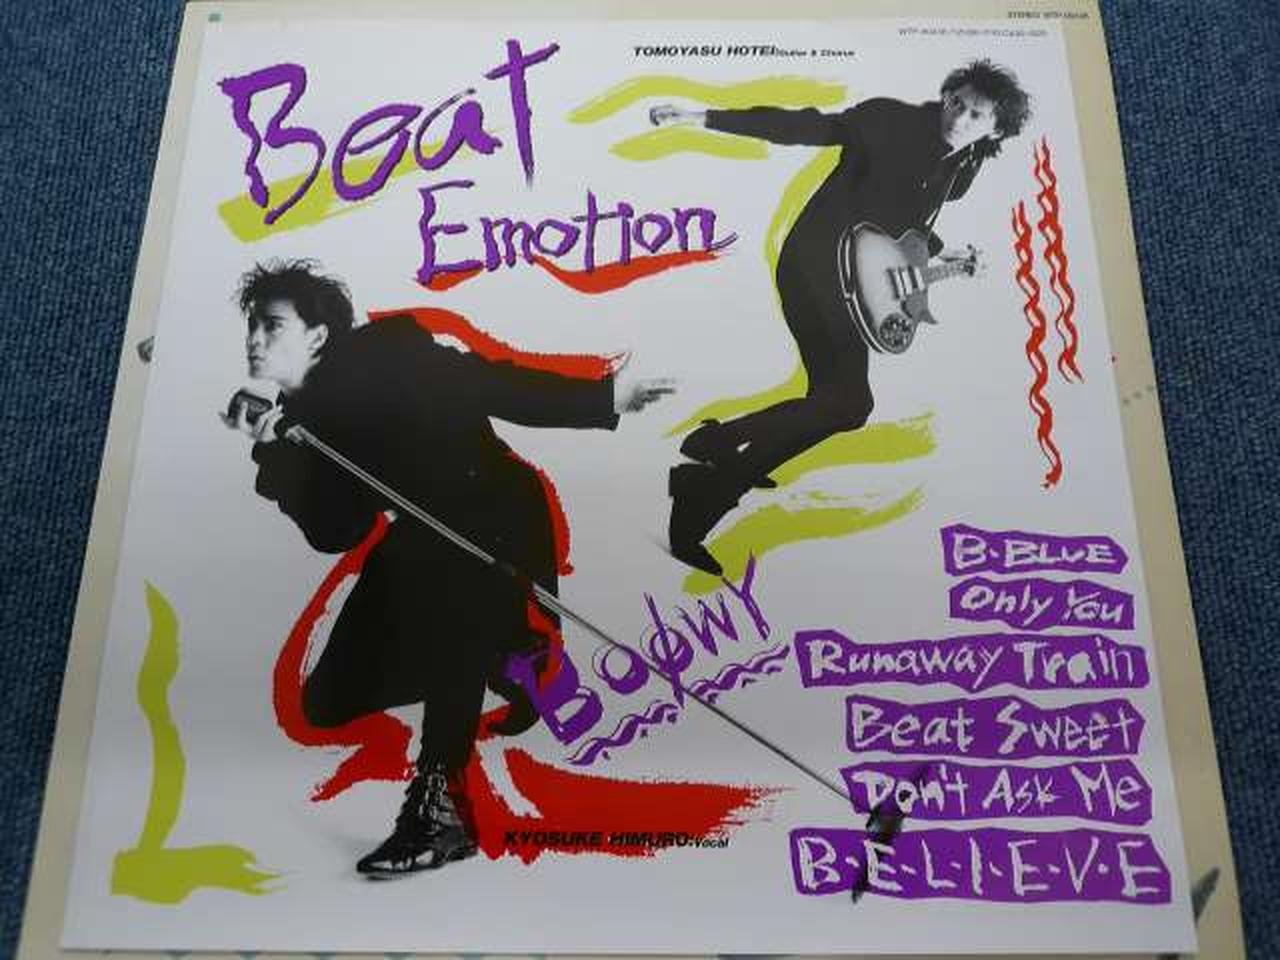 TOMOYASU HOTEI:Guitar & Chorus
Beat
Emotion
BOØWY
B·BLUE
Only You
Runaway Train
Beat Sweet
Don't Ask Me
B·E·L·I·E·V·E
KYOSUKE HIMURO:Vocal